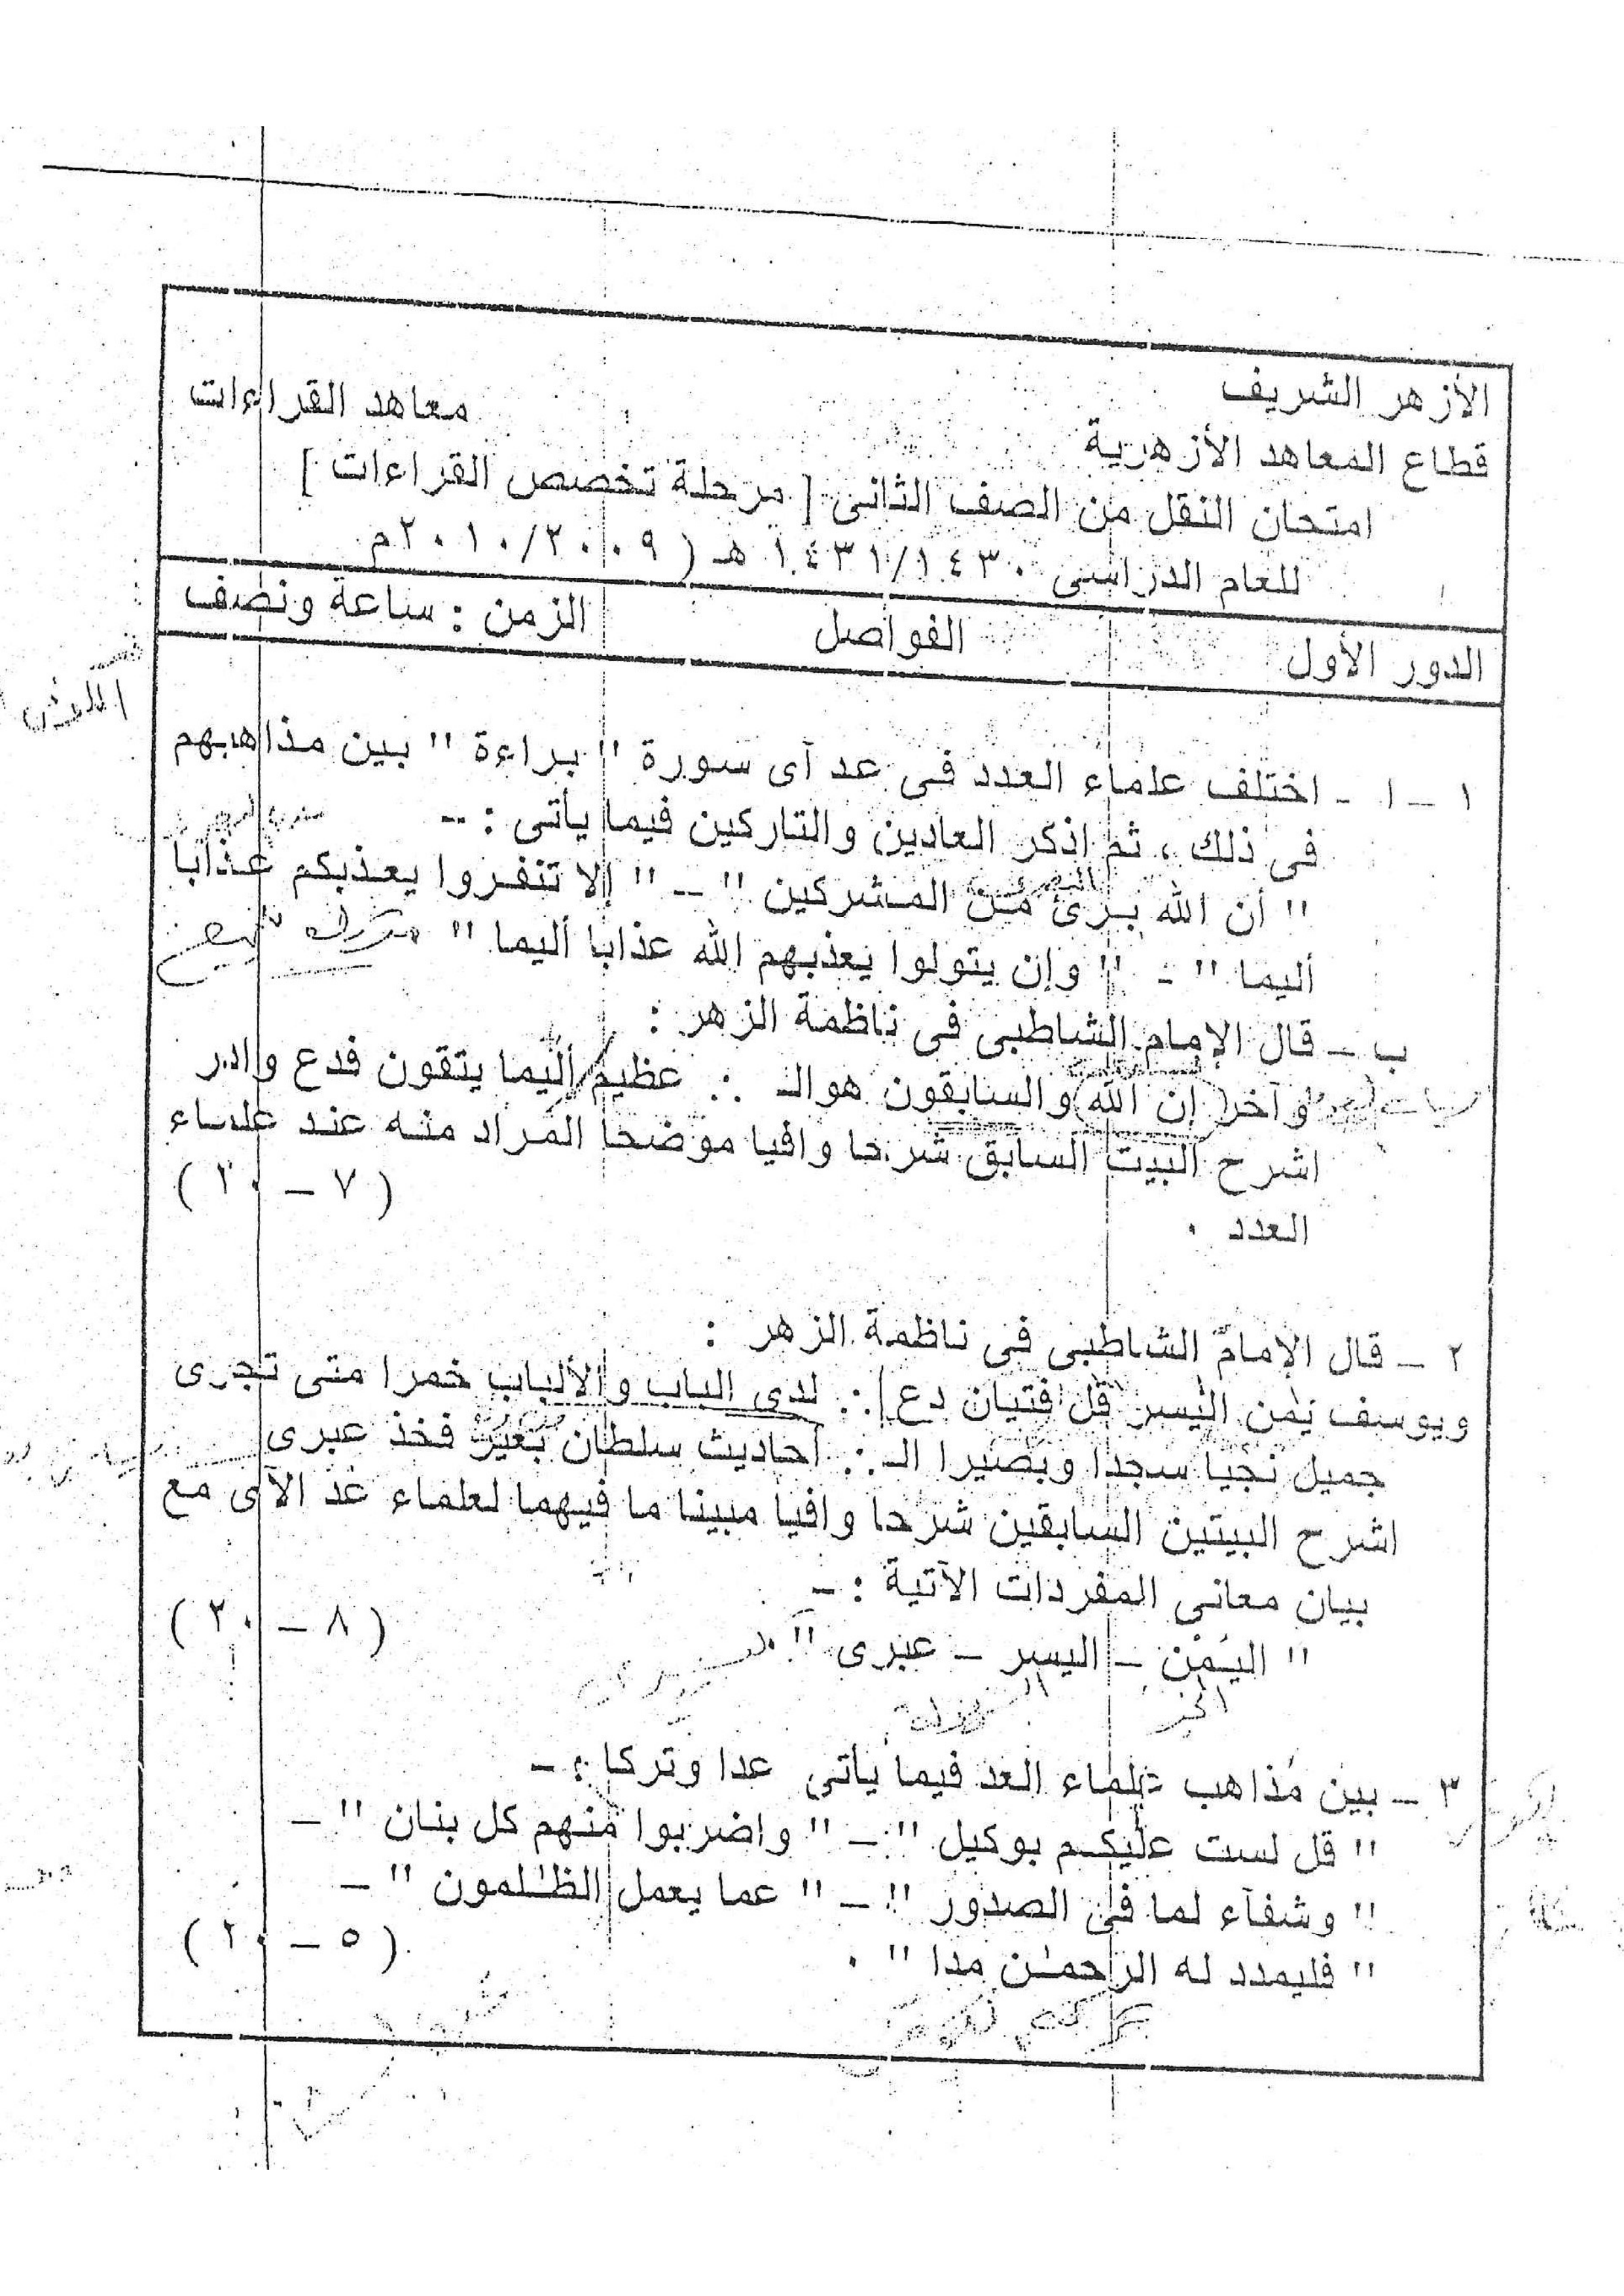 الأزهر الشريف
معاهد القراءات
قطاع المعاهد الأزهرية
امتحان النقل من الصف الثانى [ مرحلة تخصص القراءات ]
للعام الدراسى ١٤٣١/١٤٣٠ هـ ( ٢٠١٠/٢٠٠٩م
الدور الأول الفواصل الزمن : ساعة ونصف
١ – ا - اختلف علماء العدد فى عد آى سورة " براءة " بين مذاهبهم
فى ذلك ، ثم اذكر العادين والتاركين فيما يأتى : --
" أن الله برئ من المشركين " – " إلا تنفروا يعذبكم عذابا
أليما " - " وإن يتولوا يعذبهم الله عذابا أليما "
ب – قال الإمام الشاطبى فى ناظمة الزهر :
وآخر إن الله والسابقون هوالـ :. عظيم أليما يتقون فدع وادر
اشرح البيت السابق شرحا وافيا موضحا المراد منه عند علماء
العدد .
( ٧ – ٢٠ )
٢ – قال الإمام الشاطبى فى ناظمة الزهر :
ويوسف يمن اليسر قل فتيان دع :. لدى الباب والألباب خمرا متى تجرى
جميل نجيا سجدا وبصيرا الـ :. أحاديث سلطان بعير فخذ عبرى
اشرح البيتين السابقين شرحا وافيا مبينا ما فيهما لعلماء عد الآى مع
بيان معانى المفردات الآتية : –
" اليمن – اليسر – عبرى " .
( ٨ – ٢٠ )
٣ – بين مذاهب علماء العد فيما يأتى عدا وتركا : –
" قل لست عليكم بوكيل " – " واضربوا منهم كل بنان " –
" وشفآء لما فى الصدور " – " عما يعمل الظـٰلمون " –
" فليمدد له الرحمـٰن مدا " .
( ٥ – ٢٠ )